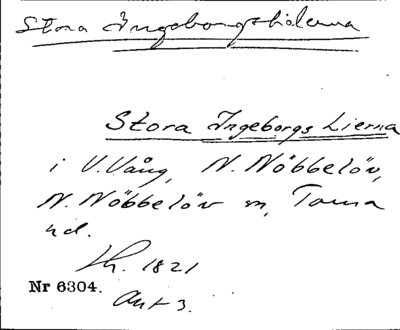 Stora Ingeborgsliderna
Stora Ingeborgs Lierna
i V.Vång, N. Nöbbelöv,
N. Nöbbelöv sn, Torna
hd.
1821
Nr 6304.
Akt 3.